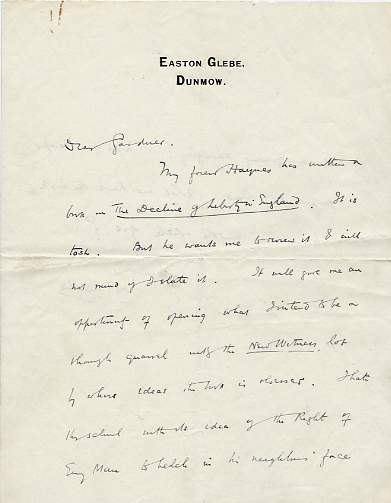 EASTON GLEBE.
DUNMOW.
Dear Gardner.
My friend Haynes has written a
book on The Decline of Liberty in England. It is
tosh. But he wants me to review it & will
not mind if I slate it. It will give me an
opportunity of opening what I intend to be a
thorough quarrel with the New Witness lot
by whose ideas the book is obsessed. I hate
the school with its idea of the Right of
Every Man to belch in his neighbours' face